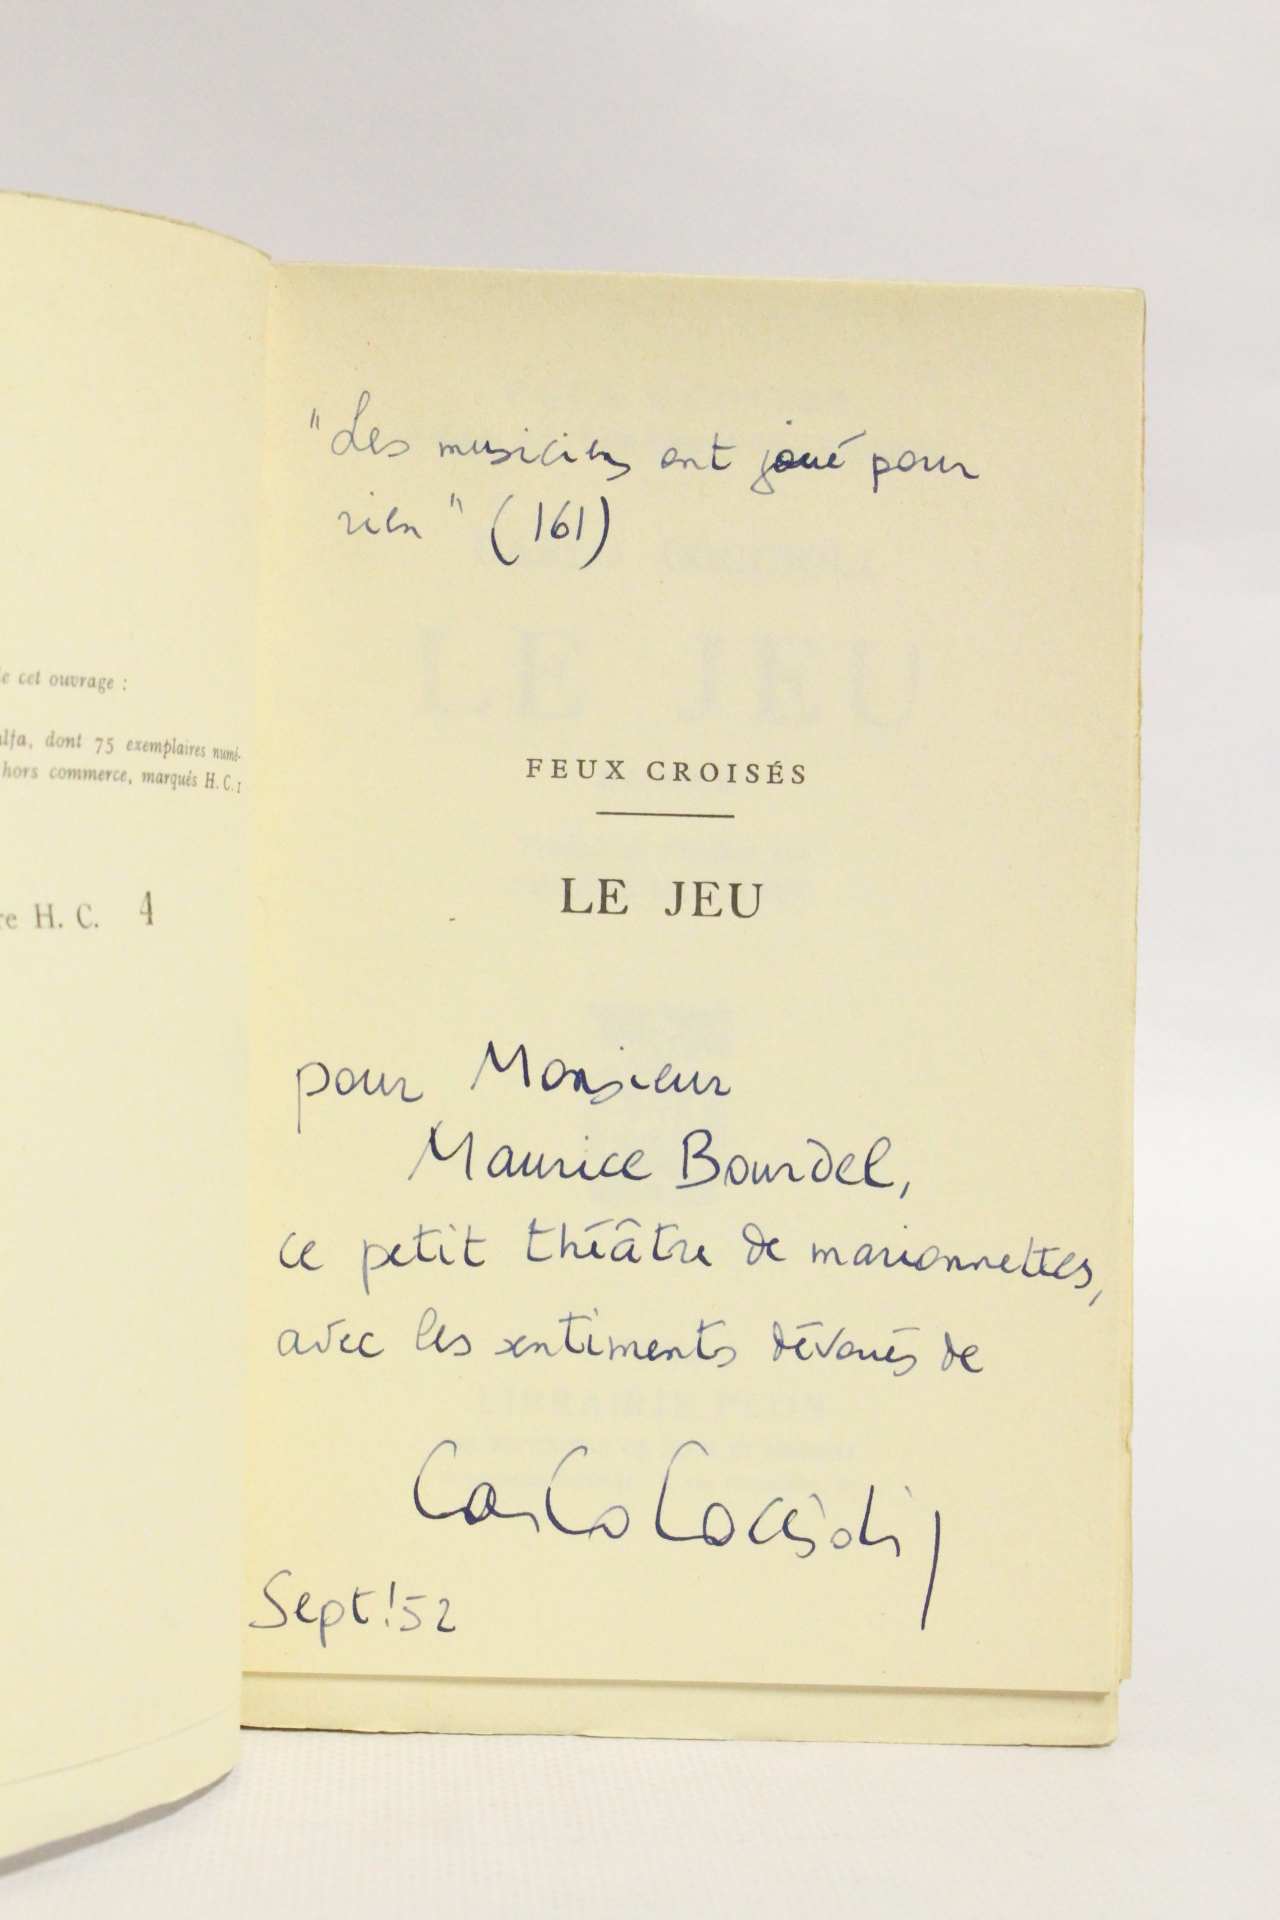 de cet ouvrage :
alfa, dont 75 exemplaires numé-
hors commerce, marqués H. C. 1
re H. C. 4
"Les musiciens ont joué pour
rien" (161)
FEUX CROISÉS
LE JEU
pour Monsieur
Maurice Bourdel,
ce petit théâtre de marionnettes,
avec les sentiments dévoués de
Carlo Coccioli
Sept! 52
LE JEU
LIBRAIRIE PLON